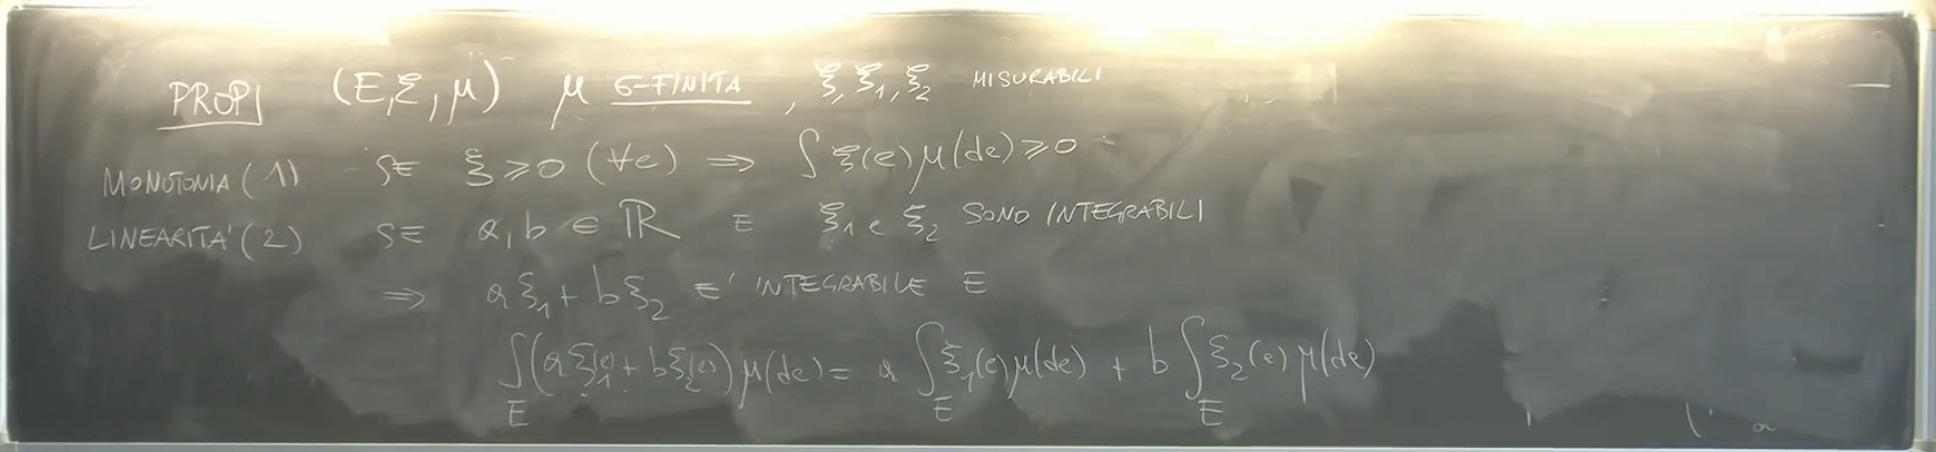 PROP| (E, ℰ, μ) μ σ-FINITA, ξ, ξ₁, ξ₂ MISURABILI
MONOTONIA (1) SE ξ ⩾ 0 (∀e) ⇒ ∫ ξ(e) μ(de) ⩾ 0
LINEARITA' (2) SE a, b ∈ ℝ E ξ₁ e ξ₂ SONO INTEGRABILI
⇒ aξ₁ + bξ₂ E' INTEGRABILE E
∫_E (aξ₁(e) + bξ₂(e)) μ(de) = a ∫_E ξ₁(e) μ(de) + b ∫_E ξ₂(e) μ(de)